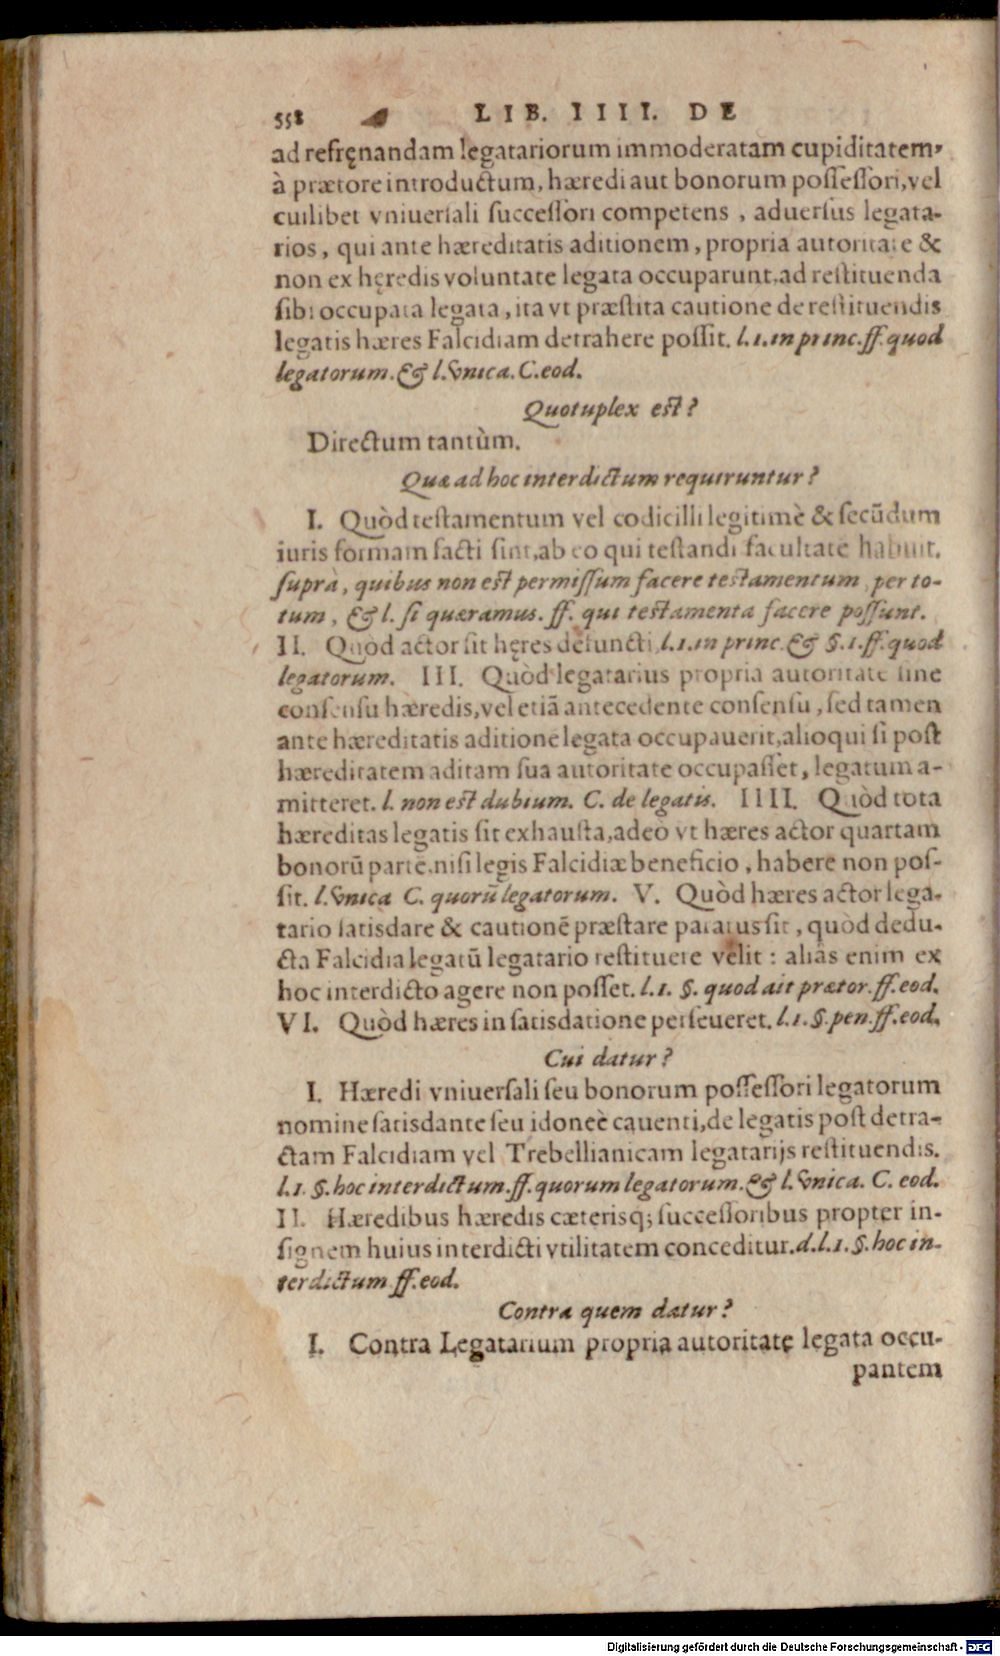 558 LIB. IIII. DE
ad refręnandam legatariorum immoderatam cupiditatem,
à prætore introductum, hæredi aut bonorum poſſeſſori, vel
cuilibet vniuerſali ſucceſſori competens, aduerſus legata-
rios, qui ante hæreditatis aditionem, propria autoritate &
non ex hęredis voluntate legata occuparunt, ad reſtituenda
ſibi occupata legata, ita vt præſtita cautione de reſtituendis
legatis hæres Falcidiam detrahere poſſit. l.1. in princ. ff. quod
legatorum. & l. vnica. C. eod.
Quotuplex eſt?
Directum tantùm.
Quæ ad hoc interdictum requiruntur?
I. Quòd teſtamentum vel codicilli legitimè & ſecũdum
iuris formam facti ſint, ab eo qui teſtandi facultatē habuit.
ſuprà, quibus non eſt permiſſum facere teſtamentum, per to-
tum, & l. ſi quæramus. ff. qui teſtamenta facere poſſunt.
II. Quòd actor ſit hęres defuncti, l.1. in princ. & §. 1. ff. quod
legatorum. III. Quòd legatarius propria autoritate ſine
conſenſu hæredis, vel etiã antecedente conſenſu, ſed tamen
ante hæreditatis aditionē legata occupauerit, alioqui ſi poſt
hæreditatem aditam ſua autoritate occupaſſet, legatum a-
mitteret. l. non eſt dubium. C. de legatis. IIII. Quòd tota
hæreditas legatis ſit exhauſta, adeò vt hæres actor quartam
bonorũ partē, niſi legis Falcidiæ beneficio, habere non poſ-
ſit. l. vnica C. quorũ legatorum. V. Quòd hæres actor lega-
tario ſatisdare & cautionē præſtare paratus ſit, quòd dedu-
cta Falcidia legatũ legatario reſtituere velit : aliâs enim ex
hoc interdicto agere non poſſet. l.1. §. quod ait prætor. ff. eod.
VI. Quòd hæres in ſatisdatione perſeueret. l.1. §. pen. ff. eod.
Cui datur?
I. Hæredi vniuerſali ſeu bonorum poſſeſſori legatorum
nomine ſatisdante ſeu idoneè cauenti, de legatis poſt detra-
ctam Falcidiam vel Trebellianicam legatarijs reſtituendis.
l.1. §. hoc interdictum. ff. quorum legatorum. & l. vnica. C. eod.
II. Hæredibus hæredis cæterisq; ſucceſſoribus propter in-
ſignem huius interdicti vtilitatem conceditur. d.l.1. §. hoc in-
terdictum ff. eod.
Contra quem datur?
I. Contra Legatarium propria autoritate legata occu-
pantem
Digitalisierung gefördert durch die Deutsche Forschungsgemeinschaft - DFG